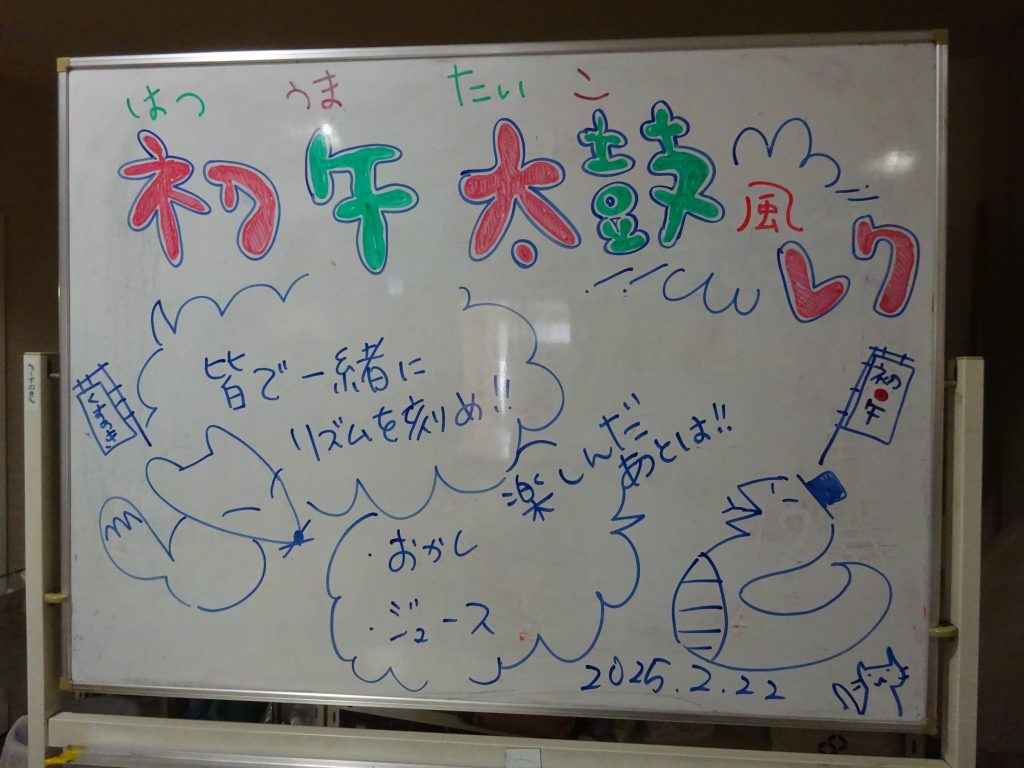 はつ うま たいこ
初午太鼓風
レク
皆で一緒に
リズムを刻め!!
楽しんだ
あとは!!
・おかし
・ジュース
初午
2025.2.22